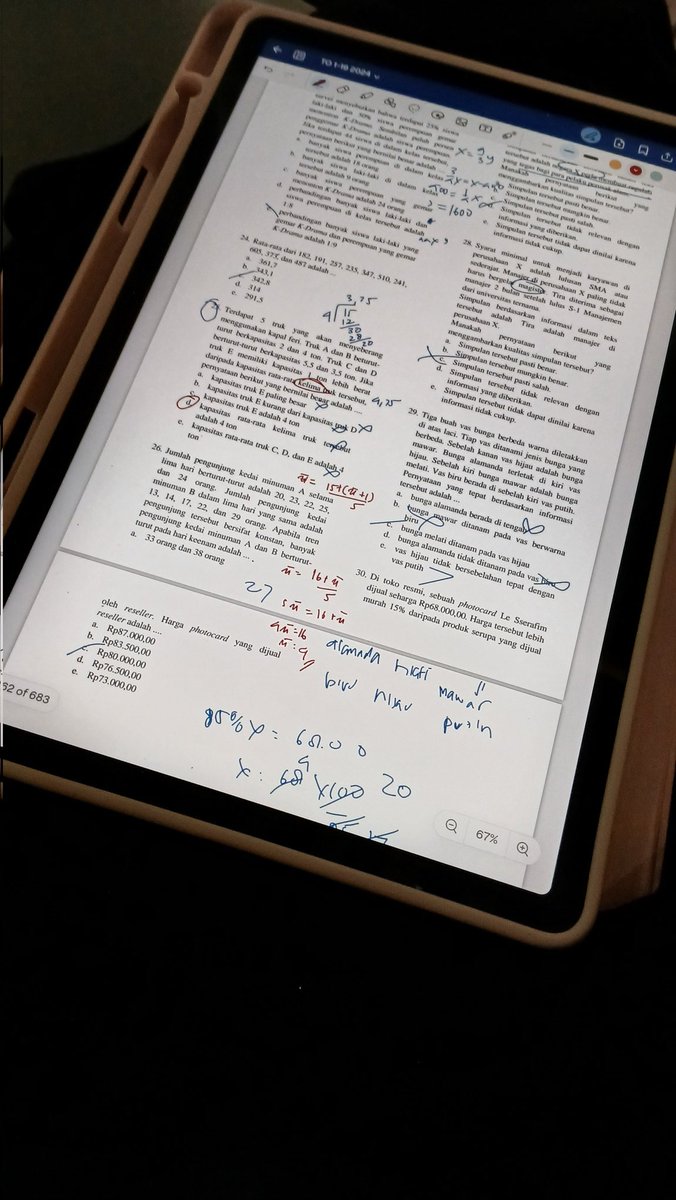 TO 1-19 2024
survei menyebutkan bahwa terdapat 25% siswa
laki-laki dan 50% siswa perempuan gemar
menonton K-Drama. Sembilan puluh persen
penggemar K-Drama adalah siswa perempuan.
Jika terdapat 44 siswa di dalam kelas tersebut,
pernyataan berikut yang bernilai benar adalah
a. banyak siswa perempuan di dalam kelas
tersebut adalah 18 orang
b. banyak siswa laki-laki di dalam kelas
tersebut adalah 9 orang
c. banyak siswa perempuan yang gemar
menonton K-Drama adalah 24 orang
d. perbandingan banyak siswa laki-laki dan
siswa perempuan di kelas tersebut adalah
1:8
e. perbandingan banyak siswa laki-laki yang
gemar K-Drama dan perempuan yang gemar
K-Drama adalah 1:9
24. Rata-rata dari 182, 191, 257, 235, 347, 510, 241,
605, 373, dan 487 adalah ...
a. 361,7
b. 343,1
c. 342,8
d. 314
e. 291,5
3,75
4 15
12
30
28
20
25. Terdapat 5 truk yang akan menyeberang
menggunakan kapal feri. Truk A dan B berturut-
turut berkapasitas 2 dan 4 ton. Truk C dan D
berturut-turut berkapasitas 5,5 dan 3,5 ton. Jika
truk E memiliki kapasitas 1 ton lebih berat
daripada kapasitas rata-rata kelima truk tersebut,
pernyataan berikut yang bernilai benar adalah ....
4,75
a. kapasitas truk E paling besar
b. kapasitas truk E kurang dari kapasitas truk D
c. kapasitas truk E adalah 4 ton
d. kapasitas rata-rata kelima truk tersebut
adalah 4 ton
e. kapasitas rata-rata truk C, D, dan E adalah 4
ton
26. Jumlah pengunjung kedai minuman A selama
lima hari berturut-turut adalah 20, 23, 22, 25,
dan 24 orang. Jumlah pengunjung kedai
minuman B dalam lima hari yang sama adalah
13, 14, 17, 22, dan 29 orang. Apabila tren
pengunjung tersebut bersifat konstan, banyak
pengunjung kedai minuman A dan B berturut-
turut pada hari keenam adalah ....
a. 33 orang dan 38 orang
27
tersebut?
Manakah pernyataan berikut yang
menggambarkan kualitas simpulan tersebut?
a. Simpulan tersebut pasti benar.
b. Simpulan tersebut mungkin benar.
c. Simpulan tersebut pasti salah.
d. Simpulan tersebut tidak relevan dengan
informasi yang diberikan.
e. Simpulan tersebut tidak dapat dinilai karena
informasi tidak cukup.
28. Syarat minimal untuk menjadi karyawan di
perusahaan X adalah lulusan SMA atau
sederajat. Manajer di perusahaan X paling tidak
harus bergelar magister. Tira diterima sebagai
manajer 2 bulan setelah lulus S-1 Manajemen
dari universitas ternama.
Simpulan berdasarkan informasi dalam teks
tersebut adalah Tira adalah manajer di
perusahaan X.
Manakah pernyataan berikut yang
menggambarkan kualitas simpulan tersebut?
a. Simpulan tersebut pasti benar.
b. Simpulan tersebut mungkin benar.
c. Simpulan tersebut pasti salah.
d. Simpulan tersebut tidak relevan dengan
informasi yang diberikan.
e. Simpulan tersebut tidak dapat dinilai karena
informasi tidak cukup.
29. Tiga buah vas bunga berbeda warna diletakkan
di atas laci. Tiap vas ditanami jenis bunga yang
berbeda. Sebelah kanan vas hijau adalah bunga
mawar. Bunga alamanda terletak di kiri vas
hijau. Sebelah kiri bunga mawar adalah bunga
melati. Vas biru berada di sebelah kiri vas putih.
Pernyataan yang tepat berdasarkan informasi
tersebut adalah ...
a. bunga alamanda berada di tengah
b. bunga mawar ditanam pada vas berwarna
biru
c. bunga melati ditanam pada vas hijau
d. bunga alamanda tidak ditanam pada vas biru
e. vas hijau tidak bersebelahan tepat dengan
vas putih
30. Di toko resmi, sebuah photocard Le Sserafim
dijual seharga Rp68.000,00. Harga tersebut lebih
murah 15% daripada produk serupa yang dijual
oleh reseller. Harga photocard yang dijual
reseller adalah ....
a. Rp87.000,00
b. Rp83.500,00
c. Rp80.000,00
d. Rp76.500,00
e. Rp73.000,00
mawar
biru hijau putih
20
62 of 683
67%